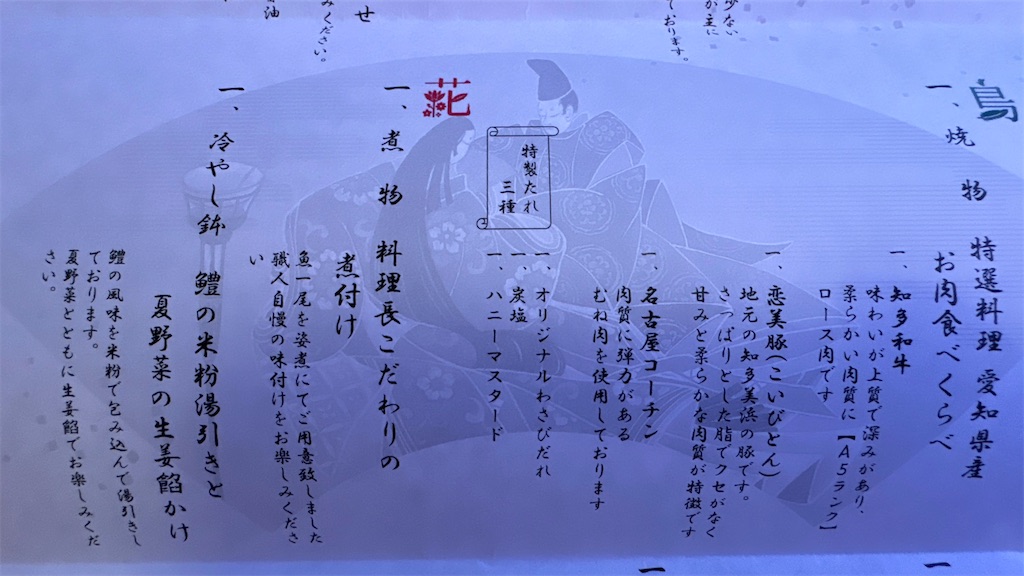 鳥
一、焼物 特選料理 愛知県産
お肉食べくらべ
一、知多和牛
味わいが上質で深みがあり、
柔らかい肉質に【A5ランク】
ロース肉です
一、恋美豚(こいびとん)
地元の知多美浜の豚です。
さっぱりとした脂でクセがなく
甘みと柔らかな肉質が特徴です
一、名古屋コーチン
肉質に弾力がある
むね肉を使用しております
特製たれ
三種
一、オリジナルわさびだれ
一、炭塩
一、ハニーマスタード
花
一、煮物 料理長こだわりの
煮付け
魚一尾を姿煮にてご用意致しました
職人自慢の味付けをお楽しみくださ
い
一、冷やし鉢 鱧の米粉湯引きと
夏野菜の生姜餡かけ
鱧の風味を米粉で包み込んで湯引きし
ております。
夏野菜とともに生姜餡でお楽しみくだ
さい。
少ない
が主に
ております。
せ
みください。
油
一
一